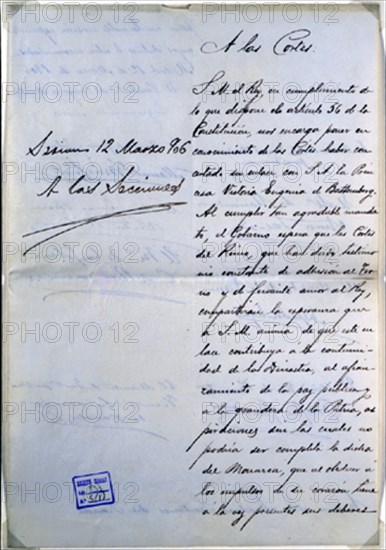 A las Cortes.
S. M. el Rey, en cumplimiento de
lo que dispone el artículo 56 de la
Constitución, nos encarga poner en
conocimiento de las Cortes haber con-
certado su enlace con S. A. la Prin-
cesa Victoria Eugenia de Battenberg.
Al cumplir tan agradable manda-
to, el Gobierno espera que las Cortes
del Reino, que han dado testimo-
nio constante de adhesión al Tro-
no y de ferviente amor al Rey,
compartirán la esperanza que
á S. M. anima de que este en-
lace contribuya á la continui-
dad de la Dinastía, al afian-
zamiento de la paz pública y
á la grandeza de la Patria, as-
piraciones sin las cuales no
podría ser completa la dicha
del Monarca, que al obedecer
á los impulsos de su corazón tiene
á la vez presentes sus deberes
Sesión 12 Marzo 906
A las Secciones
PHOTO 12